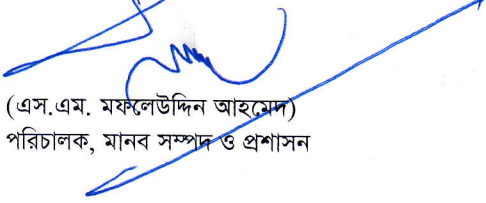 (এস.এম. মফলেউদ্দিন আহমেদ)
পরিচালক, মানব সম্পদ ও প্রশাসন